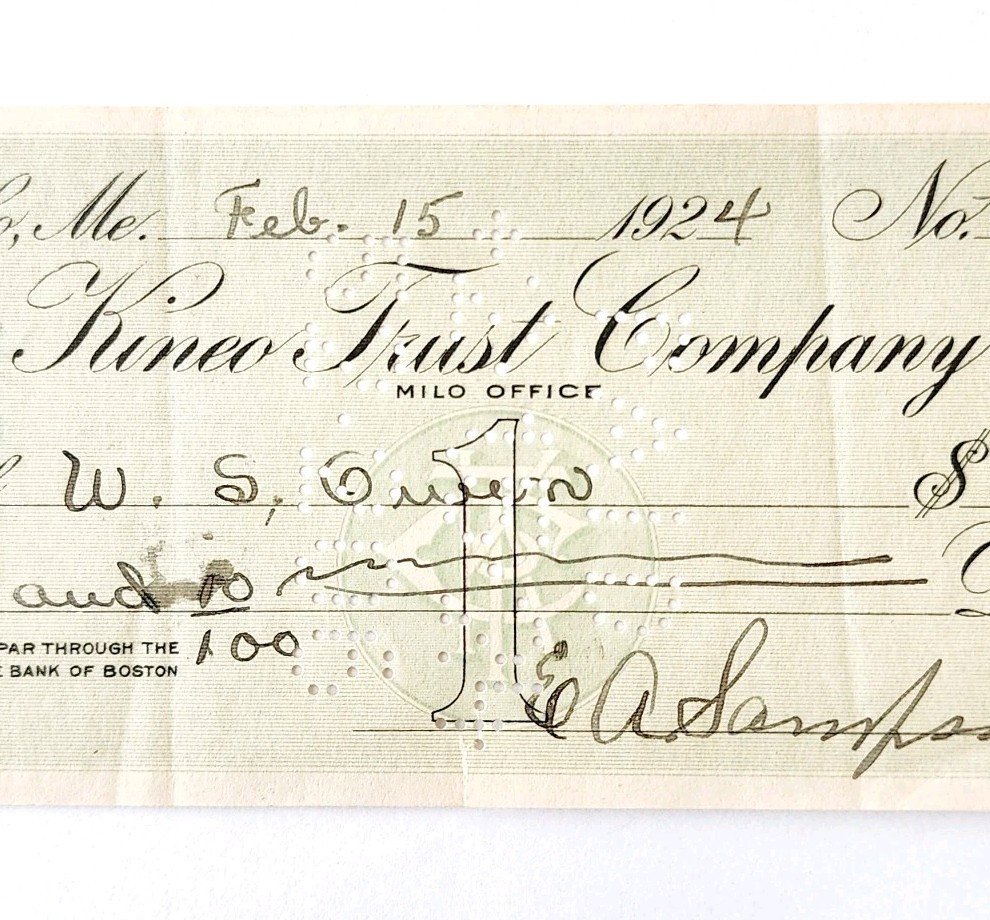 o, Me. Feb. 15 1924 No.
Kineo Trust Company
MILO OFFICE
W. S. Owen $
and 10
100
PAR THROUGH THE
BANK OF BOSTON
1
E A Samps